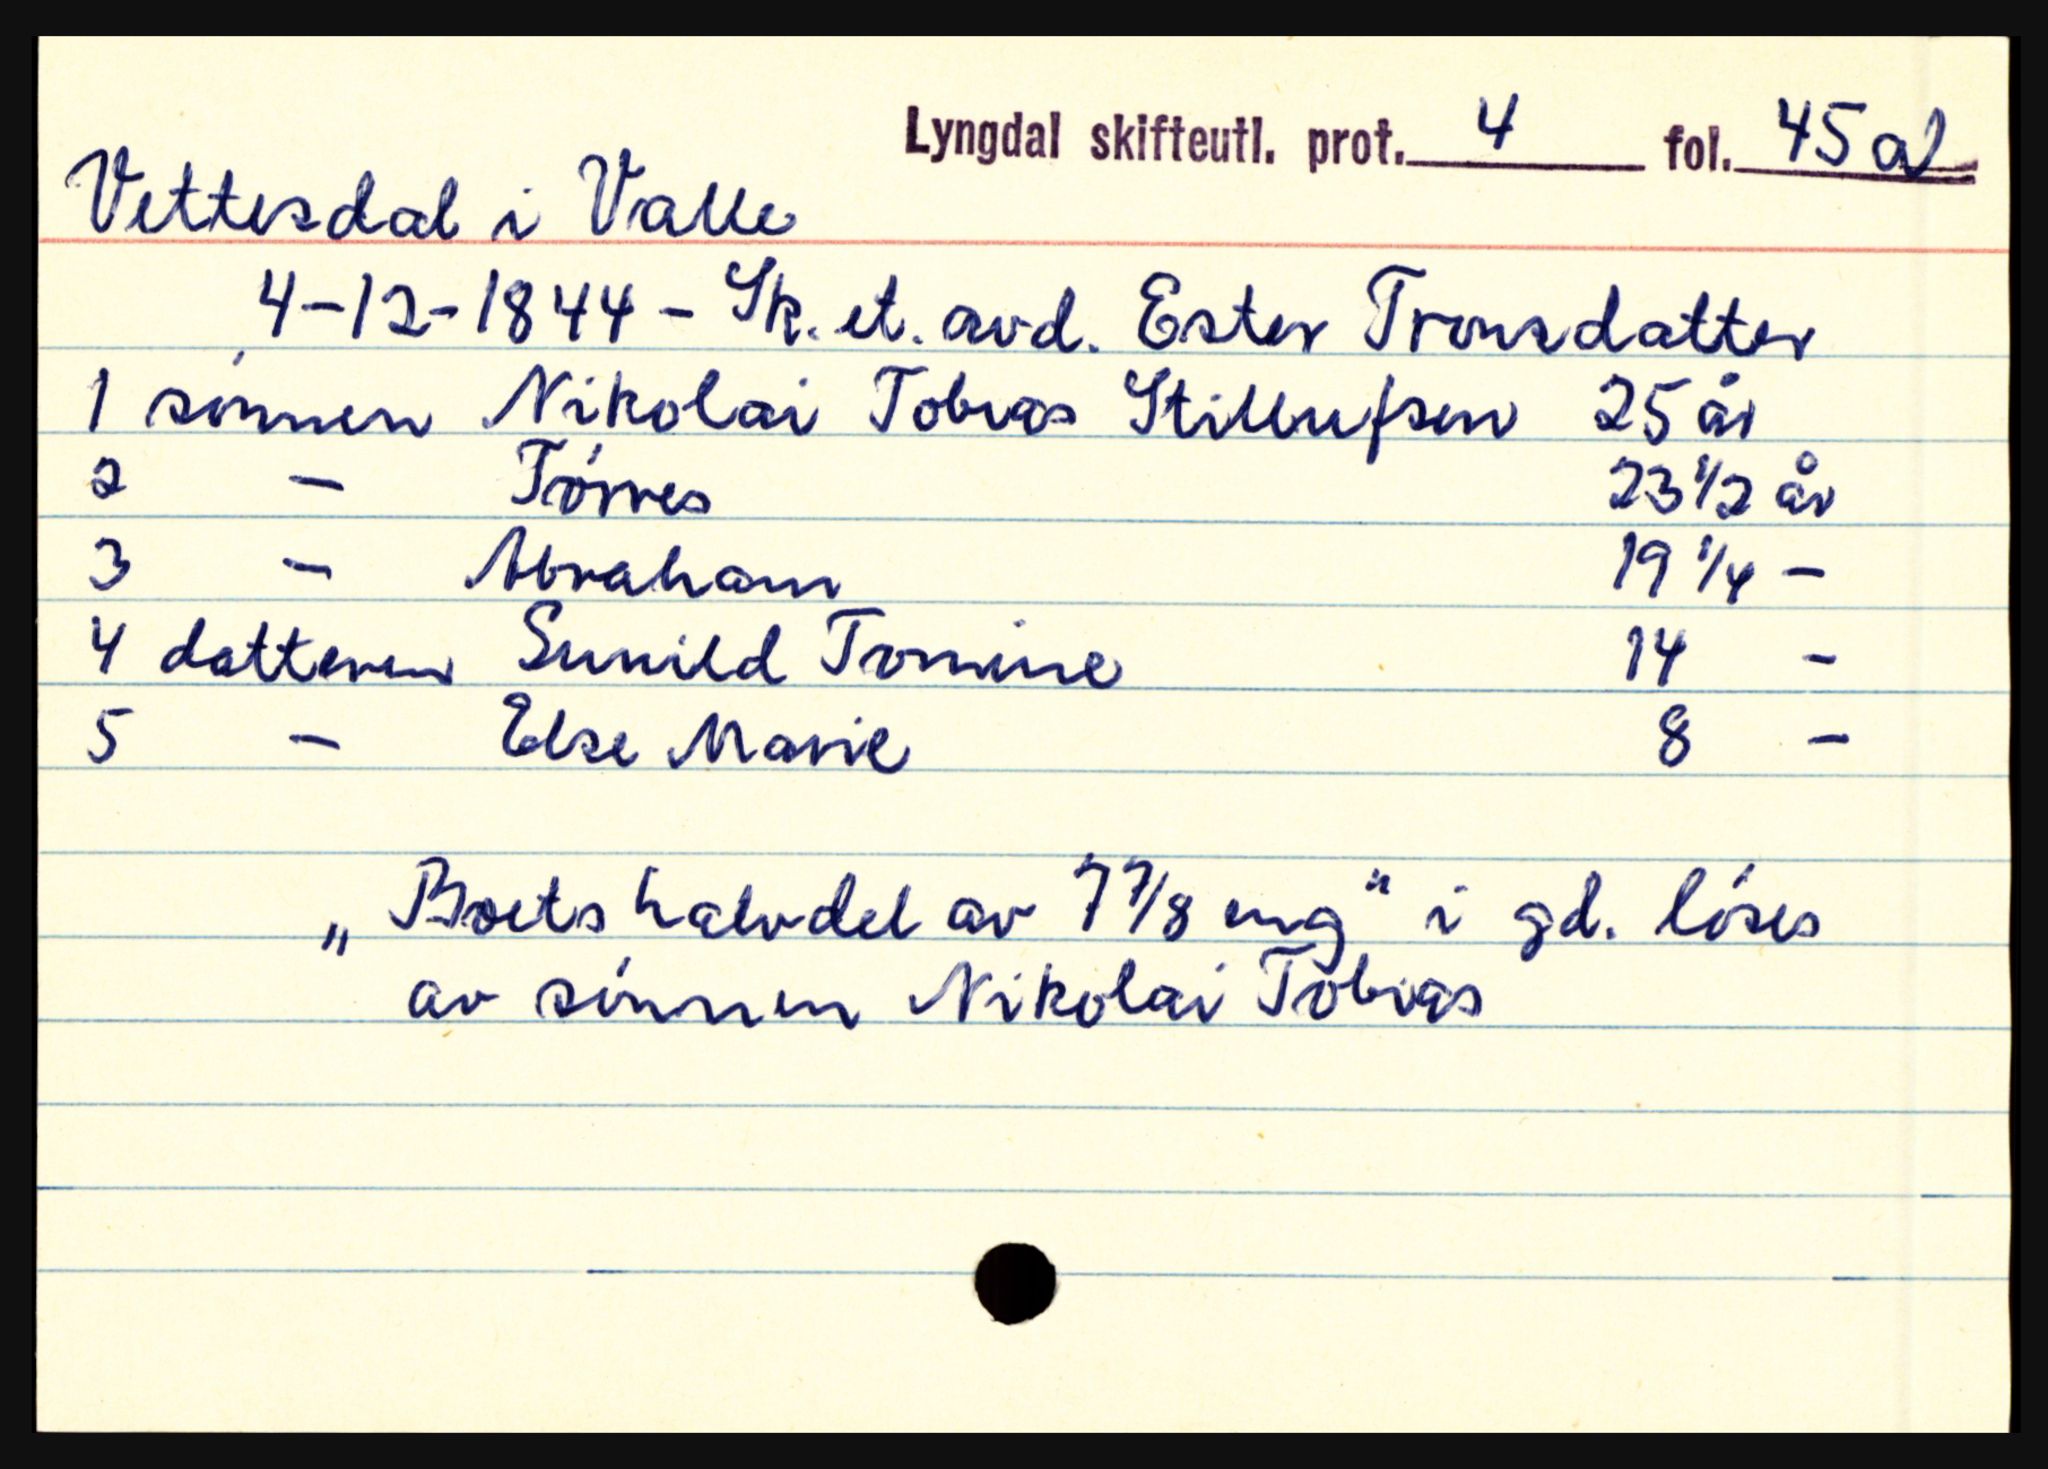 Lyngdal skifteutl. prot. 4 fol. 45 a
Vettesdal i Valle
4-12-1844 - Sk. et. avd. Ester Tronsdatter
1 sønnen Nikolai Tobias Stillufsen 25 år
2 - Tørres 23 1/2 år
3 - Abraham 19 1/4 -
4 datteren Sunild Tomine 14 -
5 - Else Marie 8 -
„Boets halvdel av 7 7/8 eng" i gd. løses
av sønnen Nikolai Tobias